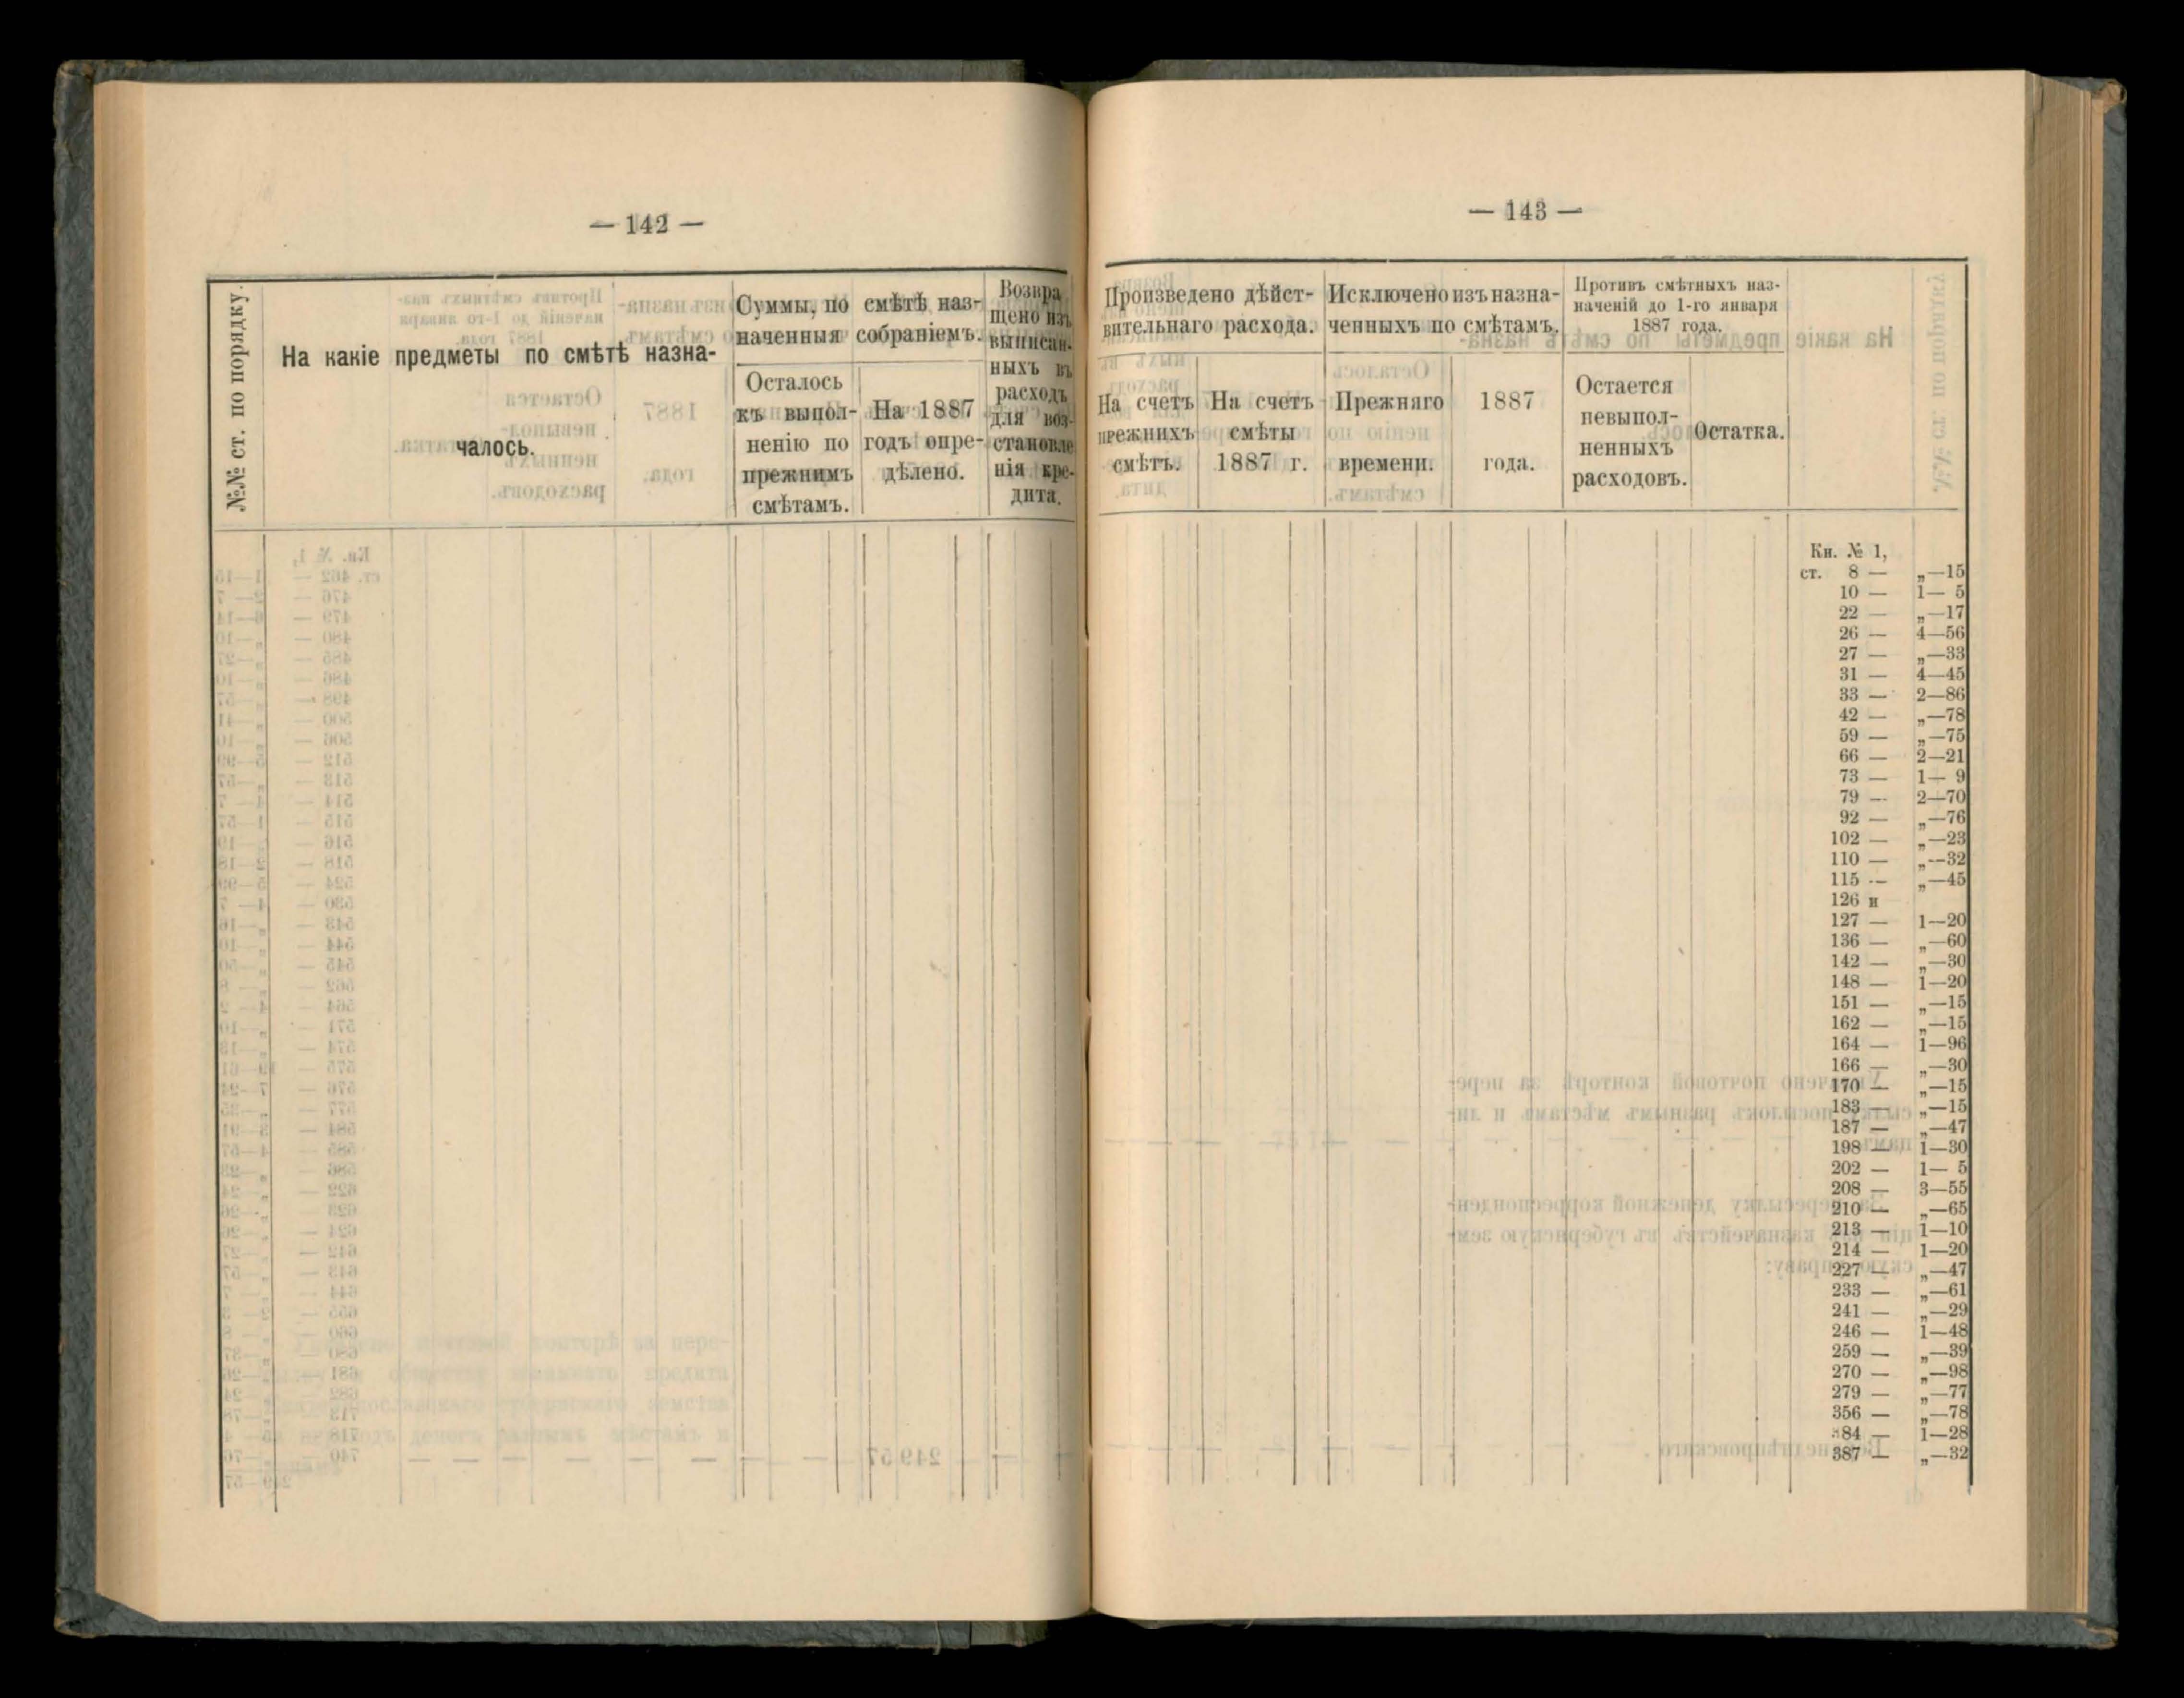 — 142 —
№№ ст. по порядку.
На какіе предметы по смѣтѣ назна-
чалось.
Суммы, по смѣтѣ наз-
наченныя собраніемъ.
Осталось
къ выпол-
ненію по
прежнимъ
смѣтамъ.
На 1887
годъ опре-
дѣлено.
Возвра
щено изъ
выписан-
ныхъ въ
расходъ
для воз-
становле
нія кре-
дита.
— 143 —
Произведено дѣйст-
вительнаго расхода.
На счетъ
прежнихъ
смѣтъ.
На счетъ
смѣты
1887 г.
Исключено изъ назна-
ченныхъ по смѣтамъ.
Прежняго
времени.
1887
года.
Противъ смѣтныхъ наз-
наченій до 1-го января
1887 года.
Остается
невыпол-
ненныхъ
расходовъ.
Остатка.
Кн. № 1,
ст. 8 — „—15
10 — 1— 5
22 — „—17
26 — 4—56
27 — „—33
31 — 4—45
33 — 2—86
42 — „—78
59 — „—75
66 — 2—21
73 — 1— 9
79 — 2—70
92 — „—76
102 — „—23
110 — „—32
115 — „—45
126 и
127 — 1—20
136 — „—60
142 — „—30
148 — 1—20
151 — „—15
162 — „—15
164 — 1—96
166 — „—30
170 — „—15
183 — „—15
187 — „—47
198 — 1—30
202 — 1— 5
208 — 3—55
210 — „—65
213 — 1—10
214 — 1—20
227 — „—47
233 — „—61
241 — „—29
246 — 1—48
259 — „—39
270 — „—98
279 — „—77
356 — „—78
384 — 1—28
387 — „—32